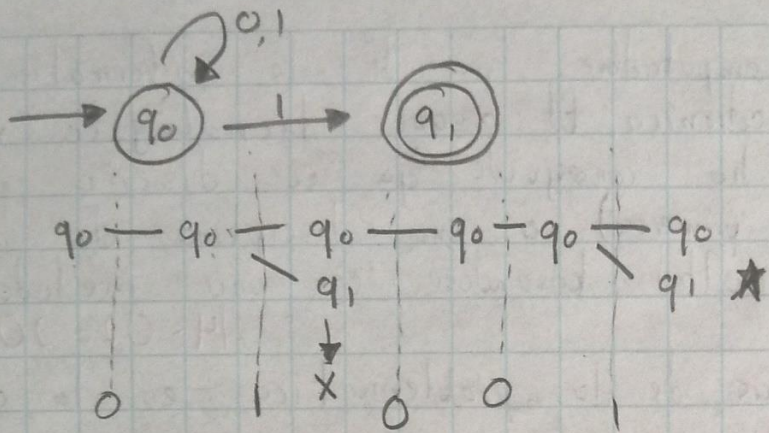 0,1
q0 1 q1
q0 q0 q0 q0 q0 q0
q1 q1 ★
0 1 x 0 0 1